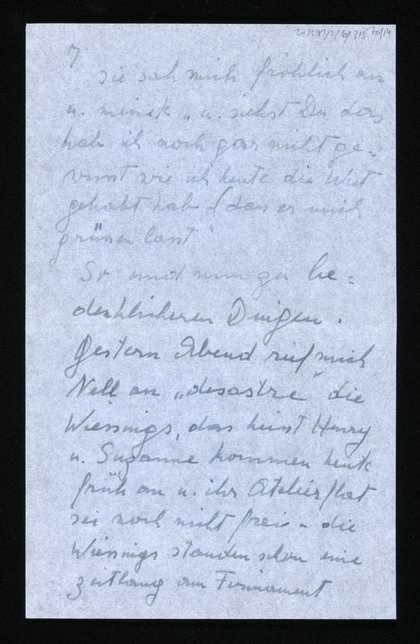 7
sie sah mich fröhlich an
u. meinte „u. siehst Du das
hab ich noch gar nicht ge-
wusst wie ich heute die Wut
gehabt hab (das er mich
grüssen lasst"
So und nun zu be=
denklicheren Dingen.
Gestern Abend rief mich
Nell an „desastre" die
Wiessings, das heist Henry
u. Suzanne kommen heute
früh an u. ihr Atelierflat
sei noch nicht frei - die
Wiessings standen schon eine
zeitlang am Firmament